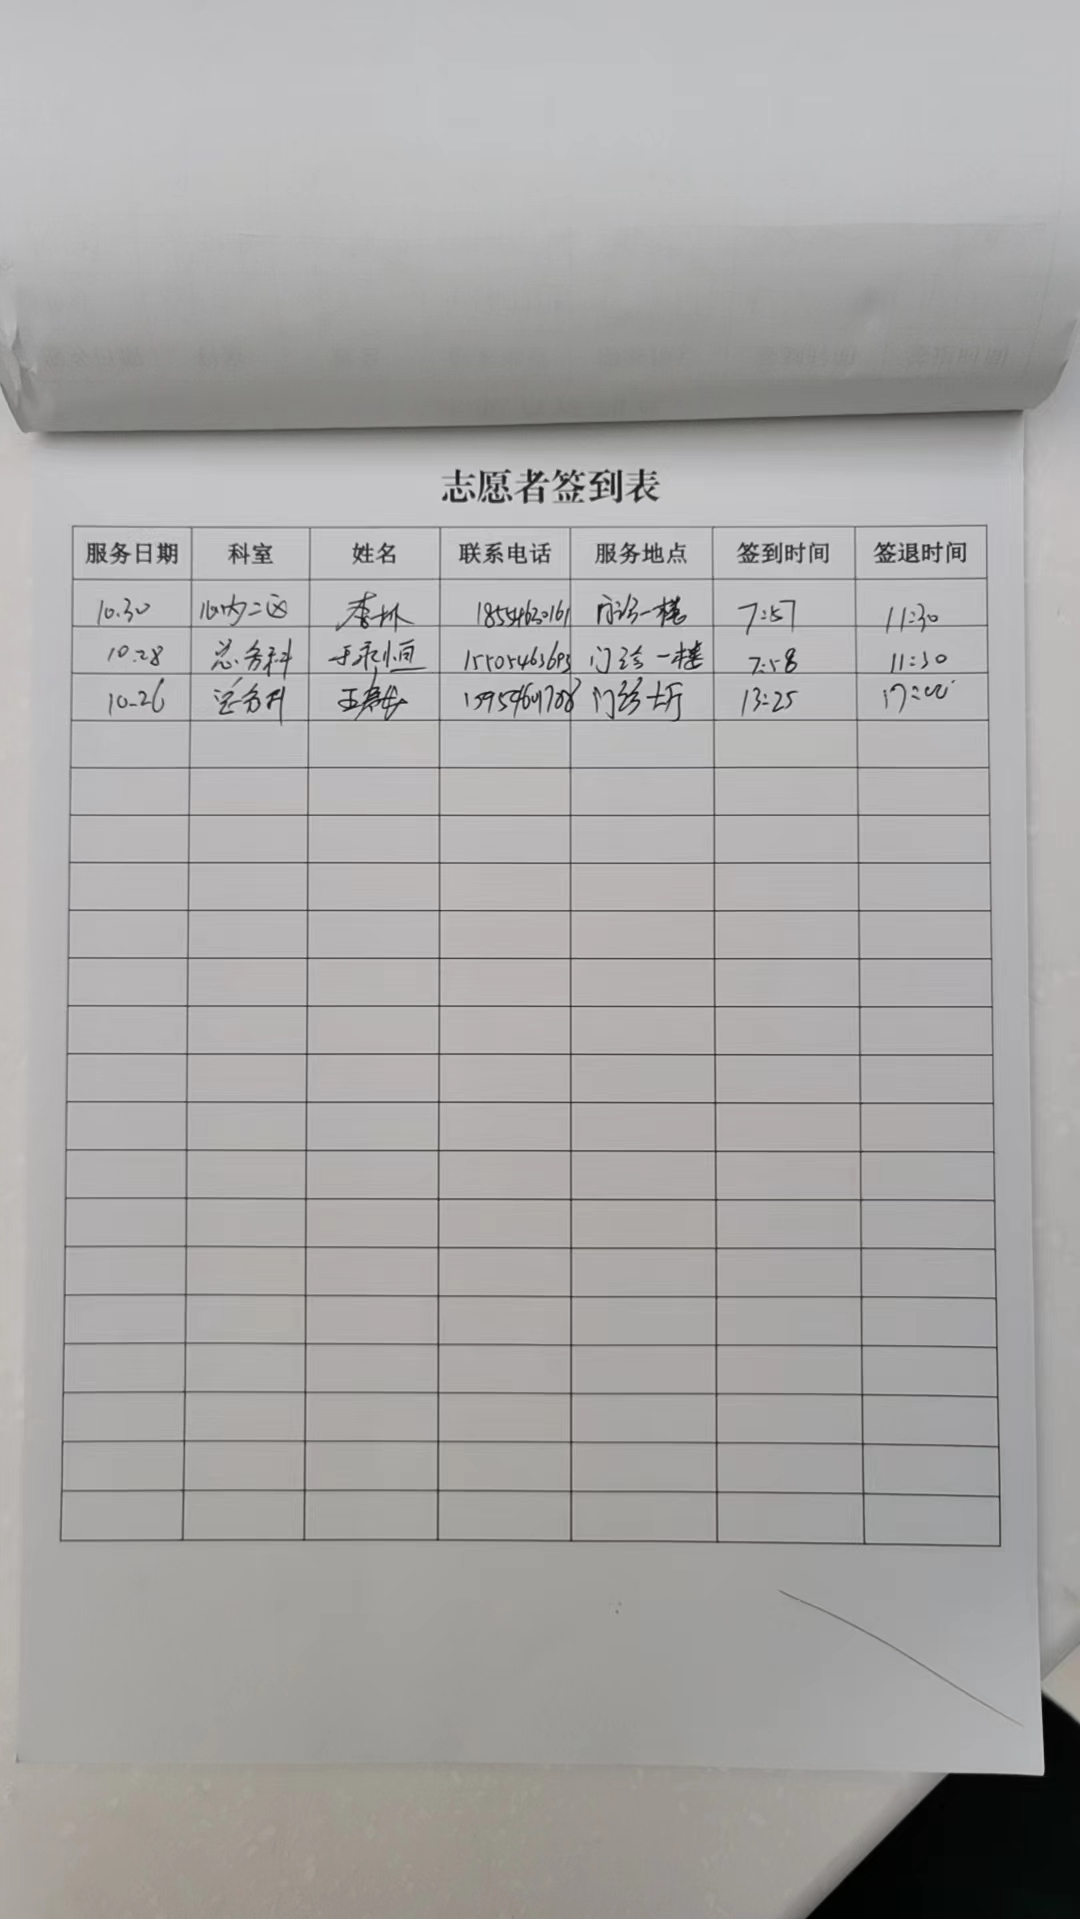 志愿者签到表
服务日期 科室 姓名 联系电话 服务地点 签到时间 签退时间
10.30 心内二区 李林 18554630161 门诊一楼 7:57 11:30
10.28 总务科 于永恒 15505463693 门诊一楼 7:58 11:30
10.26 总务科 门诊大厅 13:25 17:00